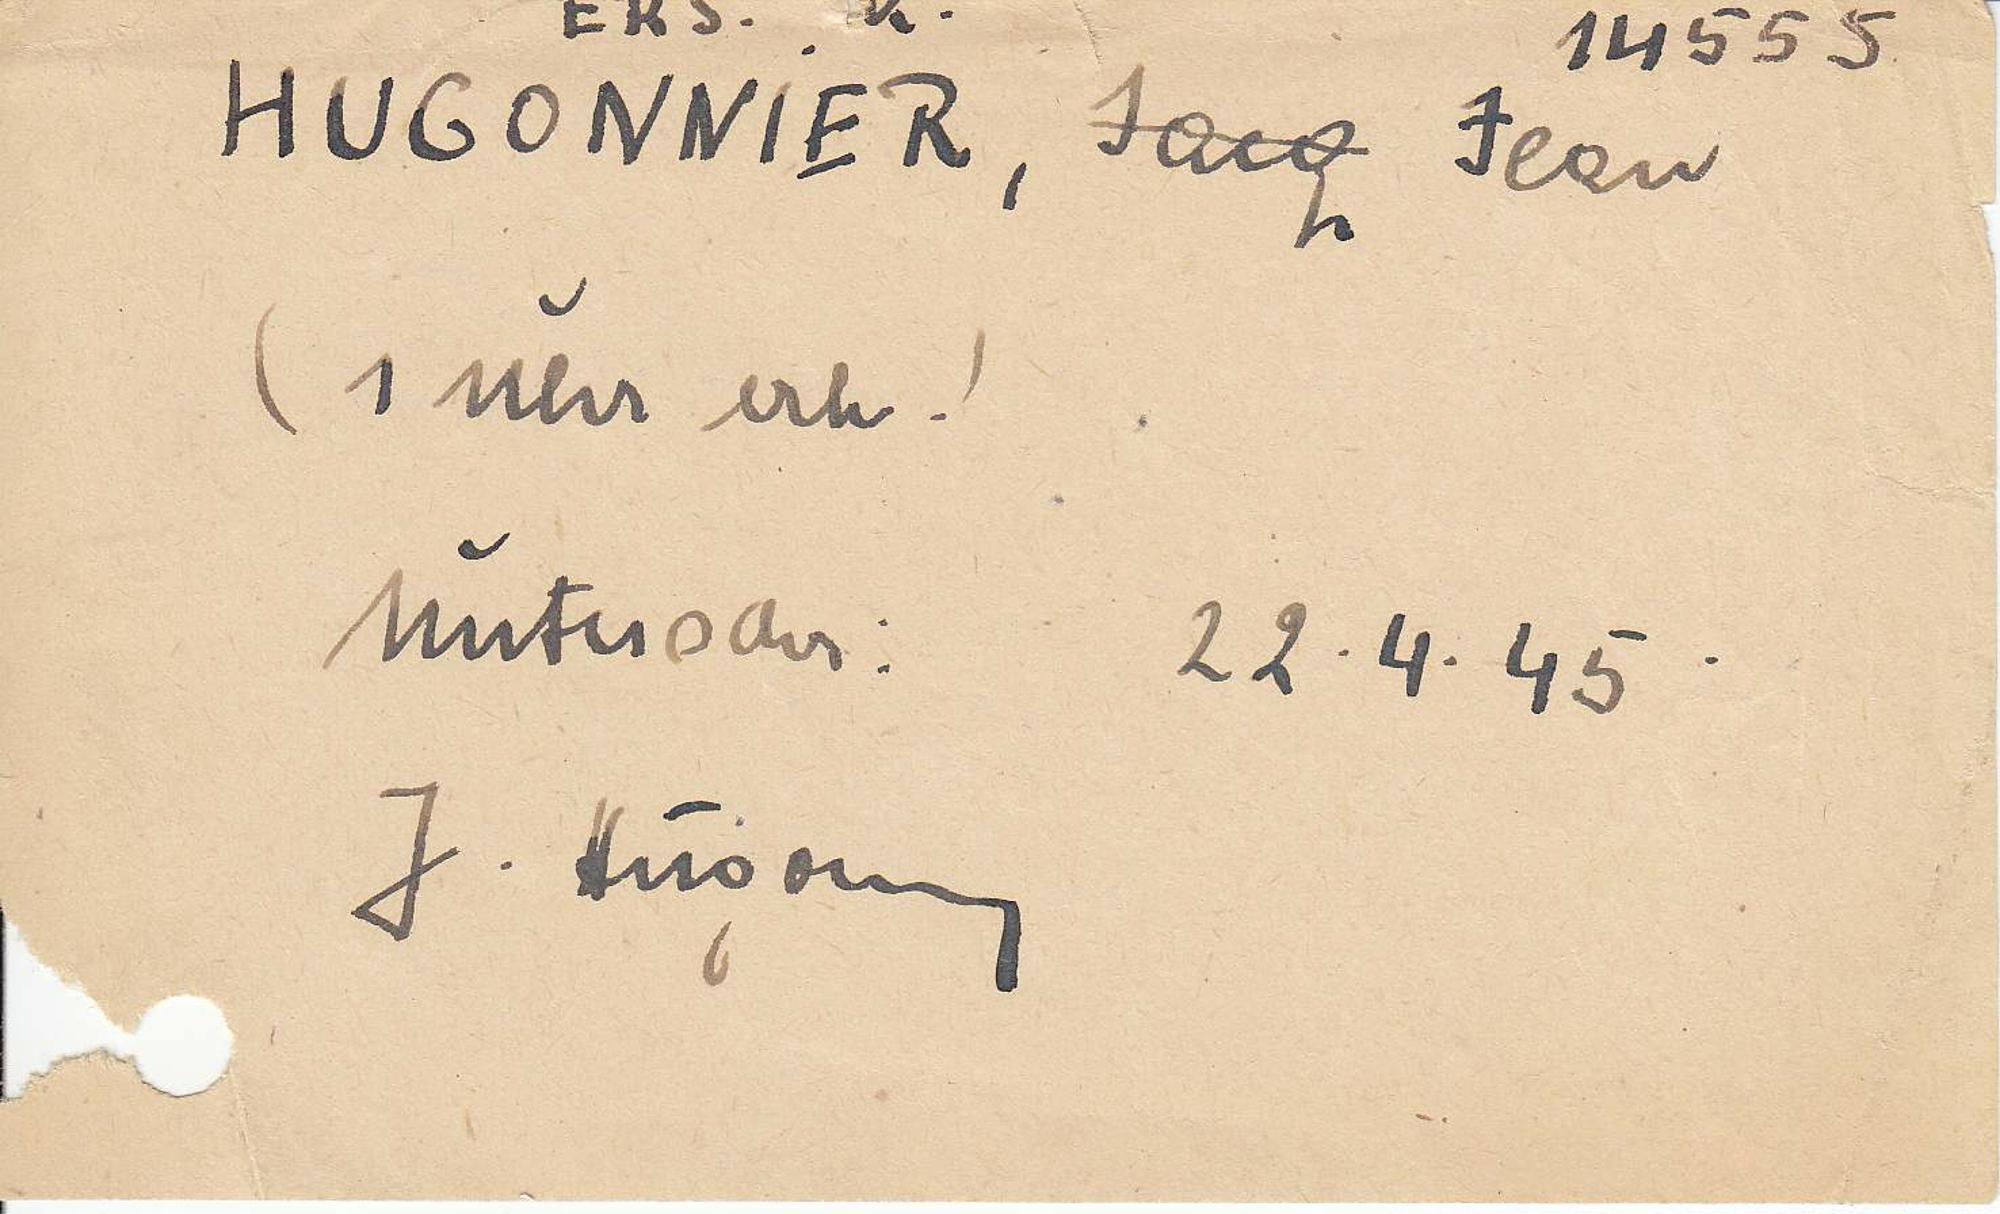 ERS. K. 14555
HUGONNIER, Jacq Jean
(1 Uhr erh.)
Unterschr: 22.4.45.
J. Hugonn